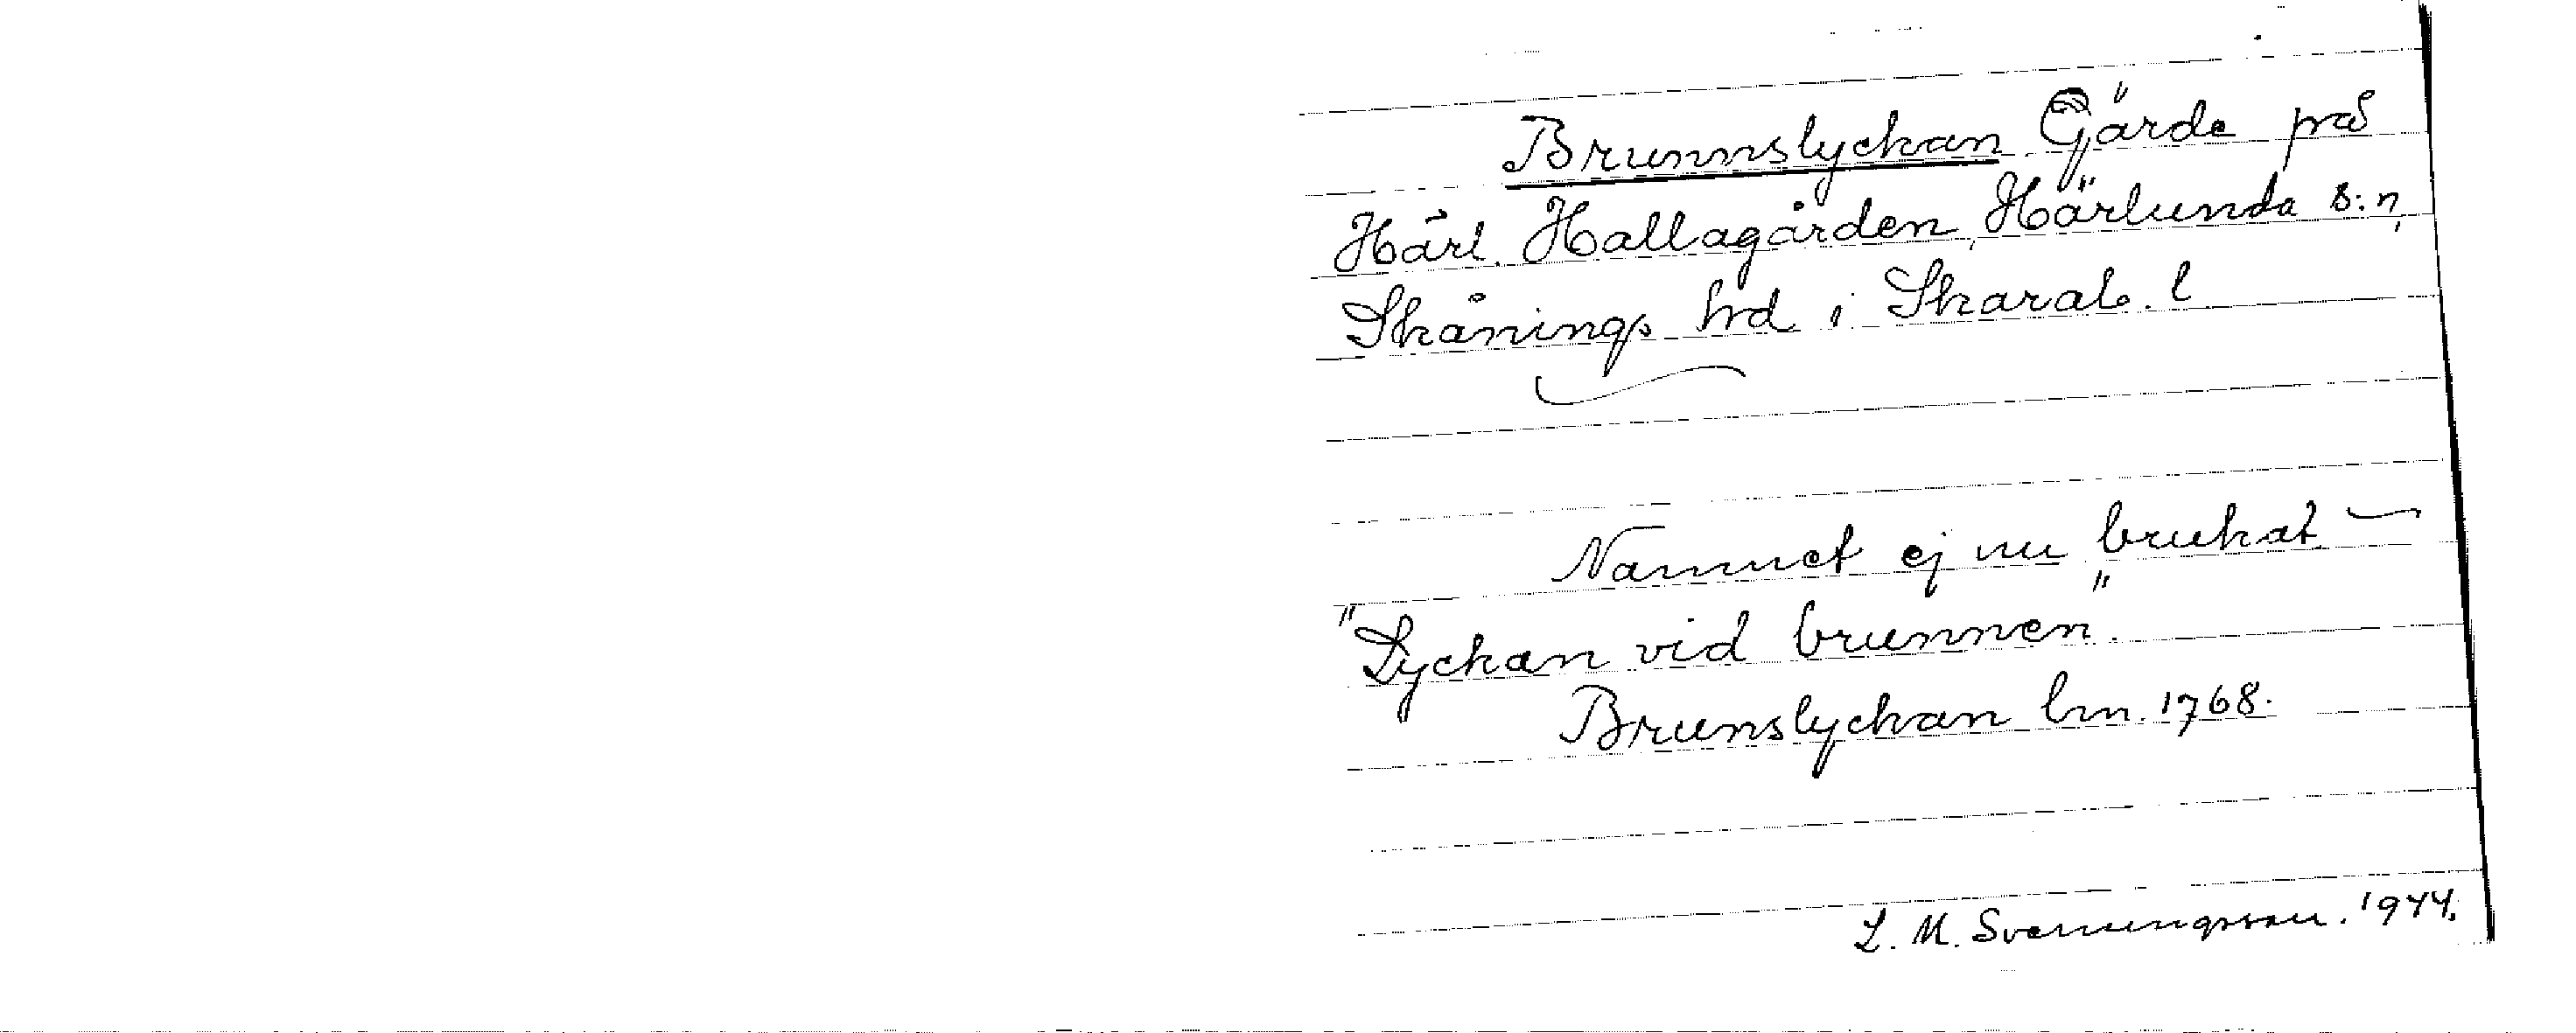 Brunnslyckan Gärde på
Härl. Hallagården, Härlunda s:n,
Skånings hrd i Skarab. l
Namnet ej nu brukat
"Lyckan vid brunnen".
Brunslyckan lm. 1768.
L. M. Svenungsson. 1944.